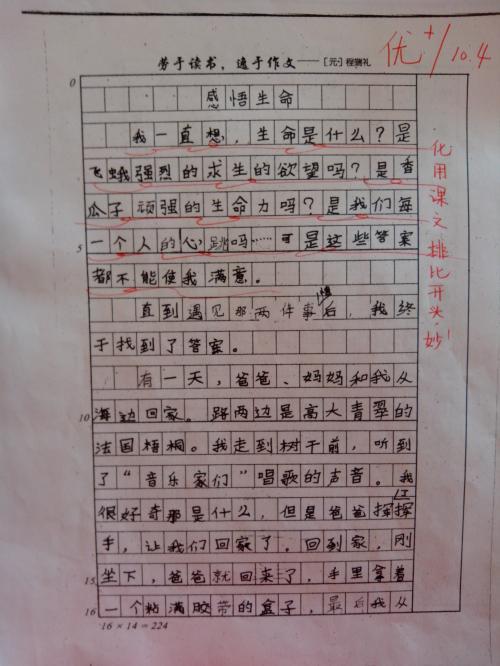 劳于读书，逸于作文——[元]程端礼
优+/10.4
0
感悟生命
我一直想，生命是什么？是
飞蛾强烈的求生的欲望吗？是香
瓜子顽强的生命力吗？是我们每
5
一个人的心跳吗……可是这些答案
都不能使我满意。
直到遇见那两件事情后，我终
于找到了答案。
有一天，爸爸、妈妈和我从
10
海边回家。路两边是高大青翠的
法国梧桐。我走到树干前，听到
了“音乐家们”唱歌的声音。我
很好奇那是什么，但是爸爸挥挥
手，让我们回家了。回到家，刚
15
坐下，爸爸就回来了，手里拿着
16
一个粘满胶带的盒子，最后我从
16×14=224
化用课文，排比开头，妙！